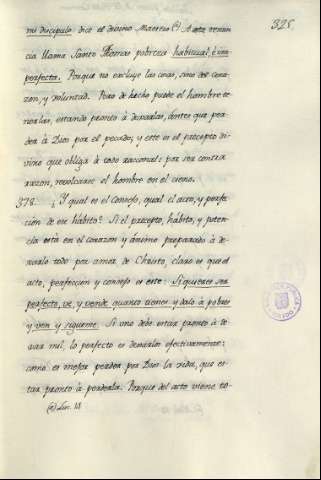 325
mi discipulo dice el divino Maestro (a) A esta renun
cia llama Santo Thomas pobreza habitual, è im
perfecta. Porque no excluye las cosas, sino del cora
zon, y voluntad. Pero de hecho puede el hombre te
nerlas, estando pronto à dexarlas, ántes que per
der à Dios por el pecado; y este es el precepto di
vino que obliga à todo racional: por ser contra
razon, revolcarse el hombre en el cieno.
378. ¿Y qual es el Consejo, qual el acto, y perfec
cion de ese hábito? Si el precepto, hábito, y poten
cia está en el corazon y ánimo preparado à de
xarlo todo por amor de Christo, claro es que el
acto, perfeccion y consejo es este: Si quieres ser
perfecto, ve, y vende quanto tienes y dalo à pobres
y ven y sigueme. Si uno debe estar pronto à de
xar mil, lo perfecto es dexarlos efectivamente:
como es mejor perder por Dios la vida, que es
tar pronto à perderla. Porque del acto viene to-
(a) Luc. 14